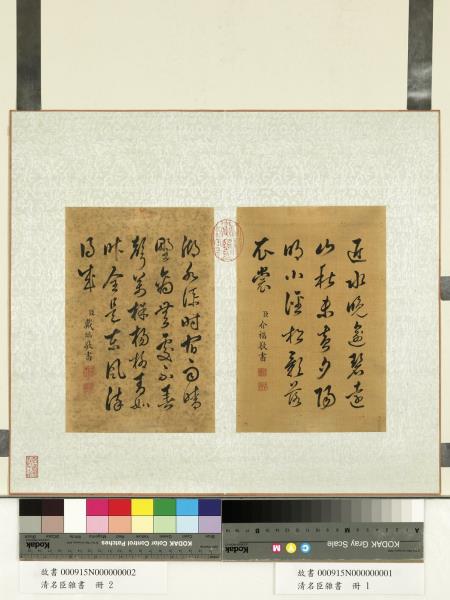 近水晚逾碧遠
山秋未黃夕陽
明小逕松影落
衣裳
臣介福敬書
湖水添時宿雨晴
野禽無處不春
聲萬株楊柳青如
許全是東風染
得成
臣戴臨敬書
Kodak Color Control Patches
Kodak
KODAK Gray Scale
C
Y
M
A
故書 000915N000000002
清名臣雜書 冊 2
故書 000915N000000001
清名臣雜書 冊 1